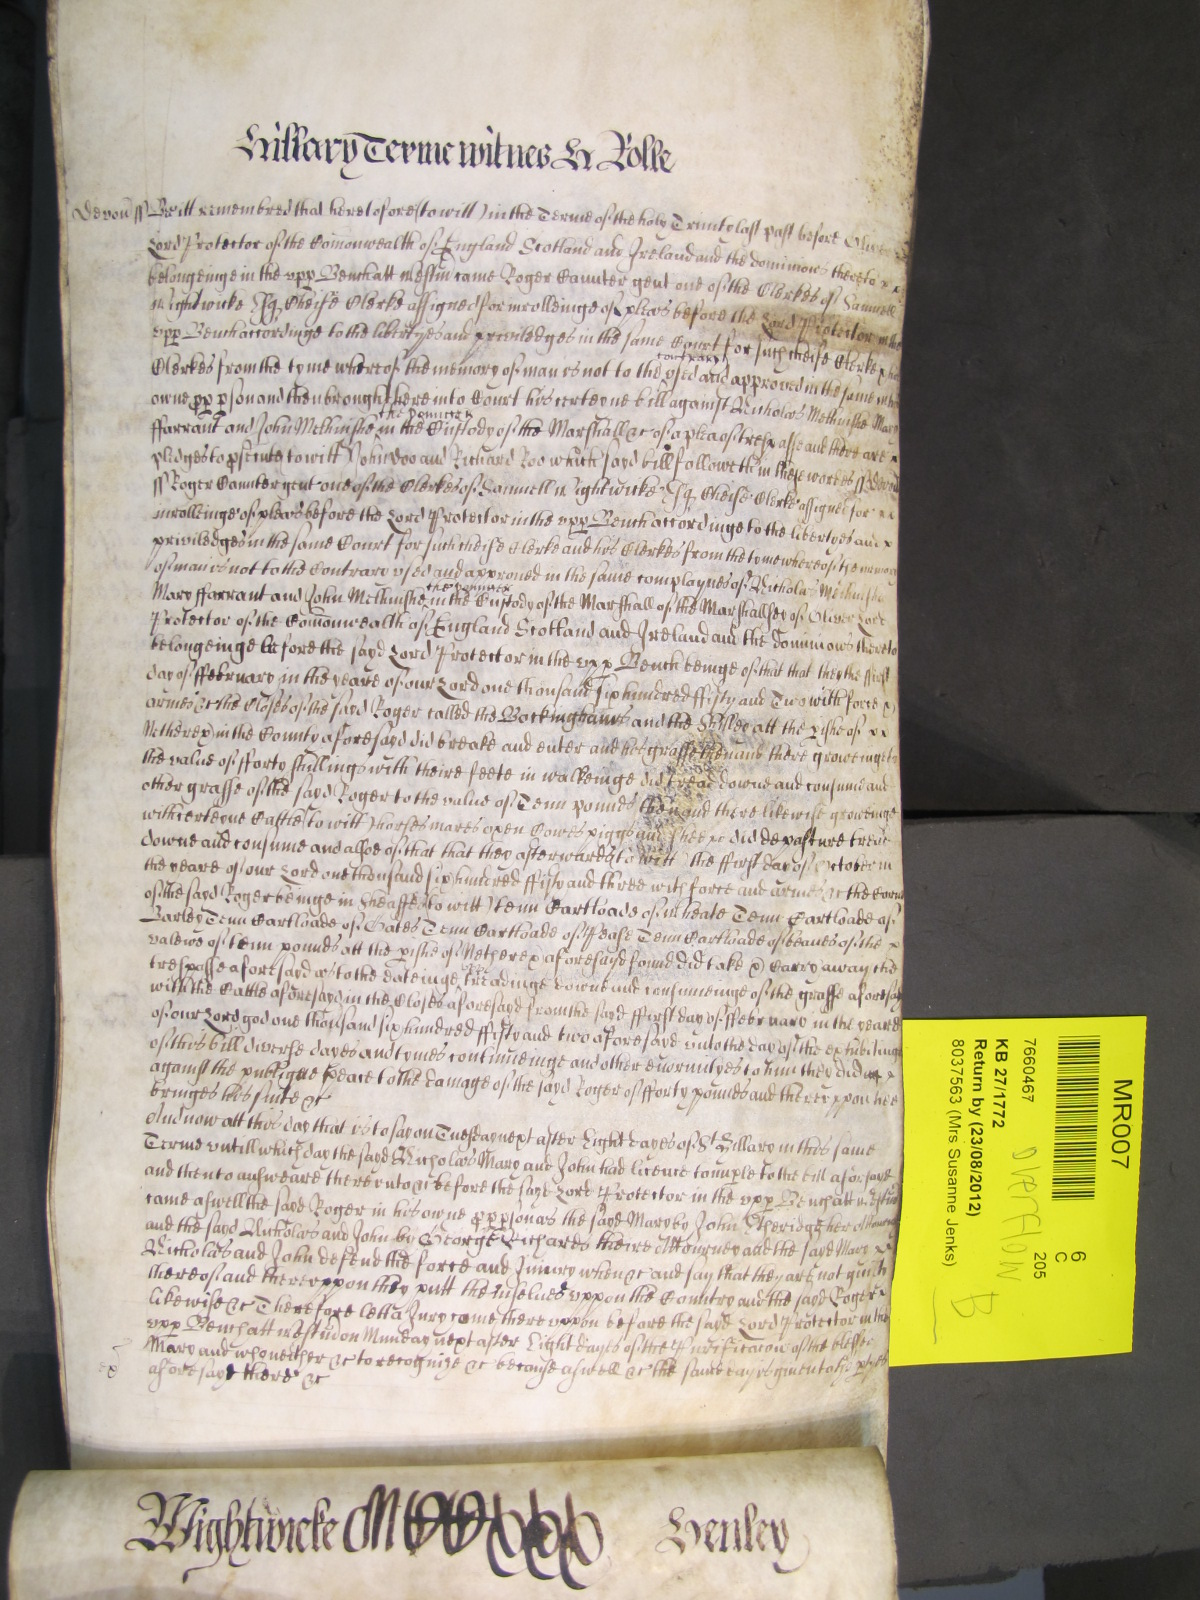 Hillary Terme witnes H Rolle
Devon ss Be itt remembred that heretofore (to witt) in the Terme of the holy Trinity last past before Oliver
Lord Protector of the Comonwealth of England Scotland and Ireland and the dominions thereto
belongeinge in the upp Bench att Westm came Roger Caunter gent one of the Clerkes of Samuell
Wightwicke Esq Cheife Clerke assigned for inrolleinge of pleas before the Lord Protector in the
upp Bench accordinge to the libertyes and priviledges in the same Court for such cheife Clerke
Clerkes from the tyme whereof the memory of man is not to the contrary used and approved in the same in his
owne pp pson and then brought here into Court his certeyne bill against Nicholas Mary
ffarrant and John in the Custody of the Marshall &c of a plea of trespasse and there are
pledges to psecute (to witt) John Doo and Richard Roo which sayd bill followeth in these wordes ss Devon
ss Roger Caunter gent one of the Clerkes of Samuell Wightwicke Esq Cheife Clerke assigned for
inrolleinge of pleas before the Lord Protector in the upp Bench accordinge to the libertyes and
priviledges in the same Court for such cheife Clerke and his Clerkes from the tyme whereof the memory
of man is not to the Contrary used and approved in the same complaynes of Nicholas
Mary ffarrant and John in the Custody of the Marshall of the Marshallsey of Oliver Lord
Protector of the Comonwealth of England Scotland and Ireland and the dominions thereto
belongeinge before the sayd Lord Protector in the upp Bench beinge of that that they the ffirst
day of ffebruary in the yeare of our Lord one thousand six hundred ffifty and Two with force &
armes &c the Closes of the sayd Roger called the and the att the pishe of
Netherex in the County aforesayd did breake and enter and his grasse then and there groweinge to
the value of fforty shillings with theire feete in walkeinge did tread downe and consume and
other grasse of the sayd Roger to the value of Tenn pounds then and there likewise groweinge
with certeyne Cattle (to witt) horses mares oxen Cowes piggs and sheepe did depasture tread
downe and consume and alsoe of that that they afterwards (to witt) the ffirst day of October in
the yeare of our Lord one thousand six hundred ffifty and three with force and armes &c the Corne
of the sayd Roger beinge in sheaffes (to witt) tenn Cartloade of wheate Tenn Cartloade of
Barley Tenn Cartloade of Oates Tenn Cartloade of Pease Tenn Cartloade of beanes of the
valewe of tenn pounds att the pishe of Netherex aforesayd found did take & Carry away the
trespasse aforesayd as to the eateinge treadinge downe and consumeinge of the grasse aforesayd
with the Cattle aforesayd in the Closes aforesayd from the sayd ffirst day of ffebruary in the yeare
of our Lord god one thousand six hundred ffifty and two aforesayd unto the day of the exhibitinge
of this bill diverse dayes and tymes continueinge and other enormityes to him they did
against the publique peace to the damage of the sayd Roger of fforty pounds and thereuppon hee
bringes his suite &c
And now att this day that is to say on Tuesday next after Eight dayes of St Hillary in this same
Terme untill which day the sayd Nicholas Mary and John had licence to imple to the bill aforesayd
and then to answeare thereunto &c before the sayd Lord Protector in the upp Bench att Westm
came aswell the sayd Roger in his owne pp pson as the sayd Mary by John her Attourney
and the sayd Nicholas and John by George Richards theire Attourney and the sayd Mary
Nicholas and John defend the force and Iniury when &c and say that they are not guilty
thereof and thereuppon they putt themselves uppon the Country and the sayd Roger
likewise &c Therefore lett a Jury come thereuppon before the sayd Lord Protector in the
upp Bench att Westm on Munday next after Eight dayes of the Purificacon of the blessed
Mary and who neither &c to recognize &c because aswell &c the same day is given to the pties
aforesayd there &c
Wightwicke Henley
MR007
6
C
205
7660467
KB 27/1772
Return by (23/08/2012)
8037563 (Mrs Susanne Jenks)
overflow
B